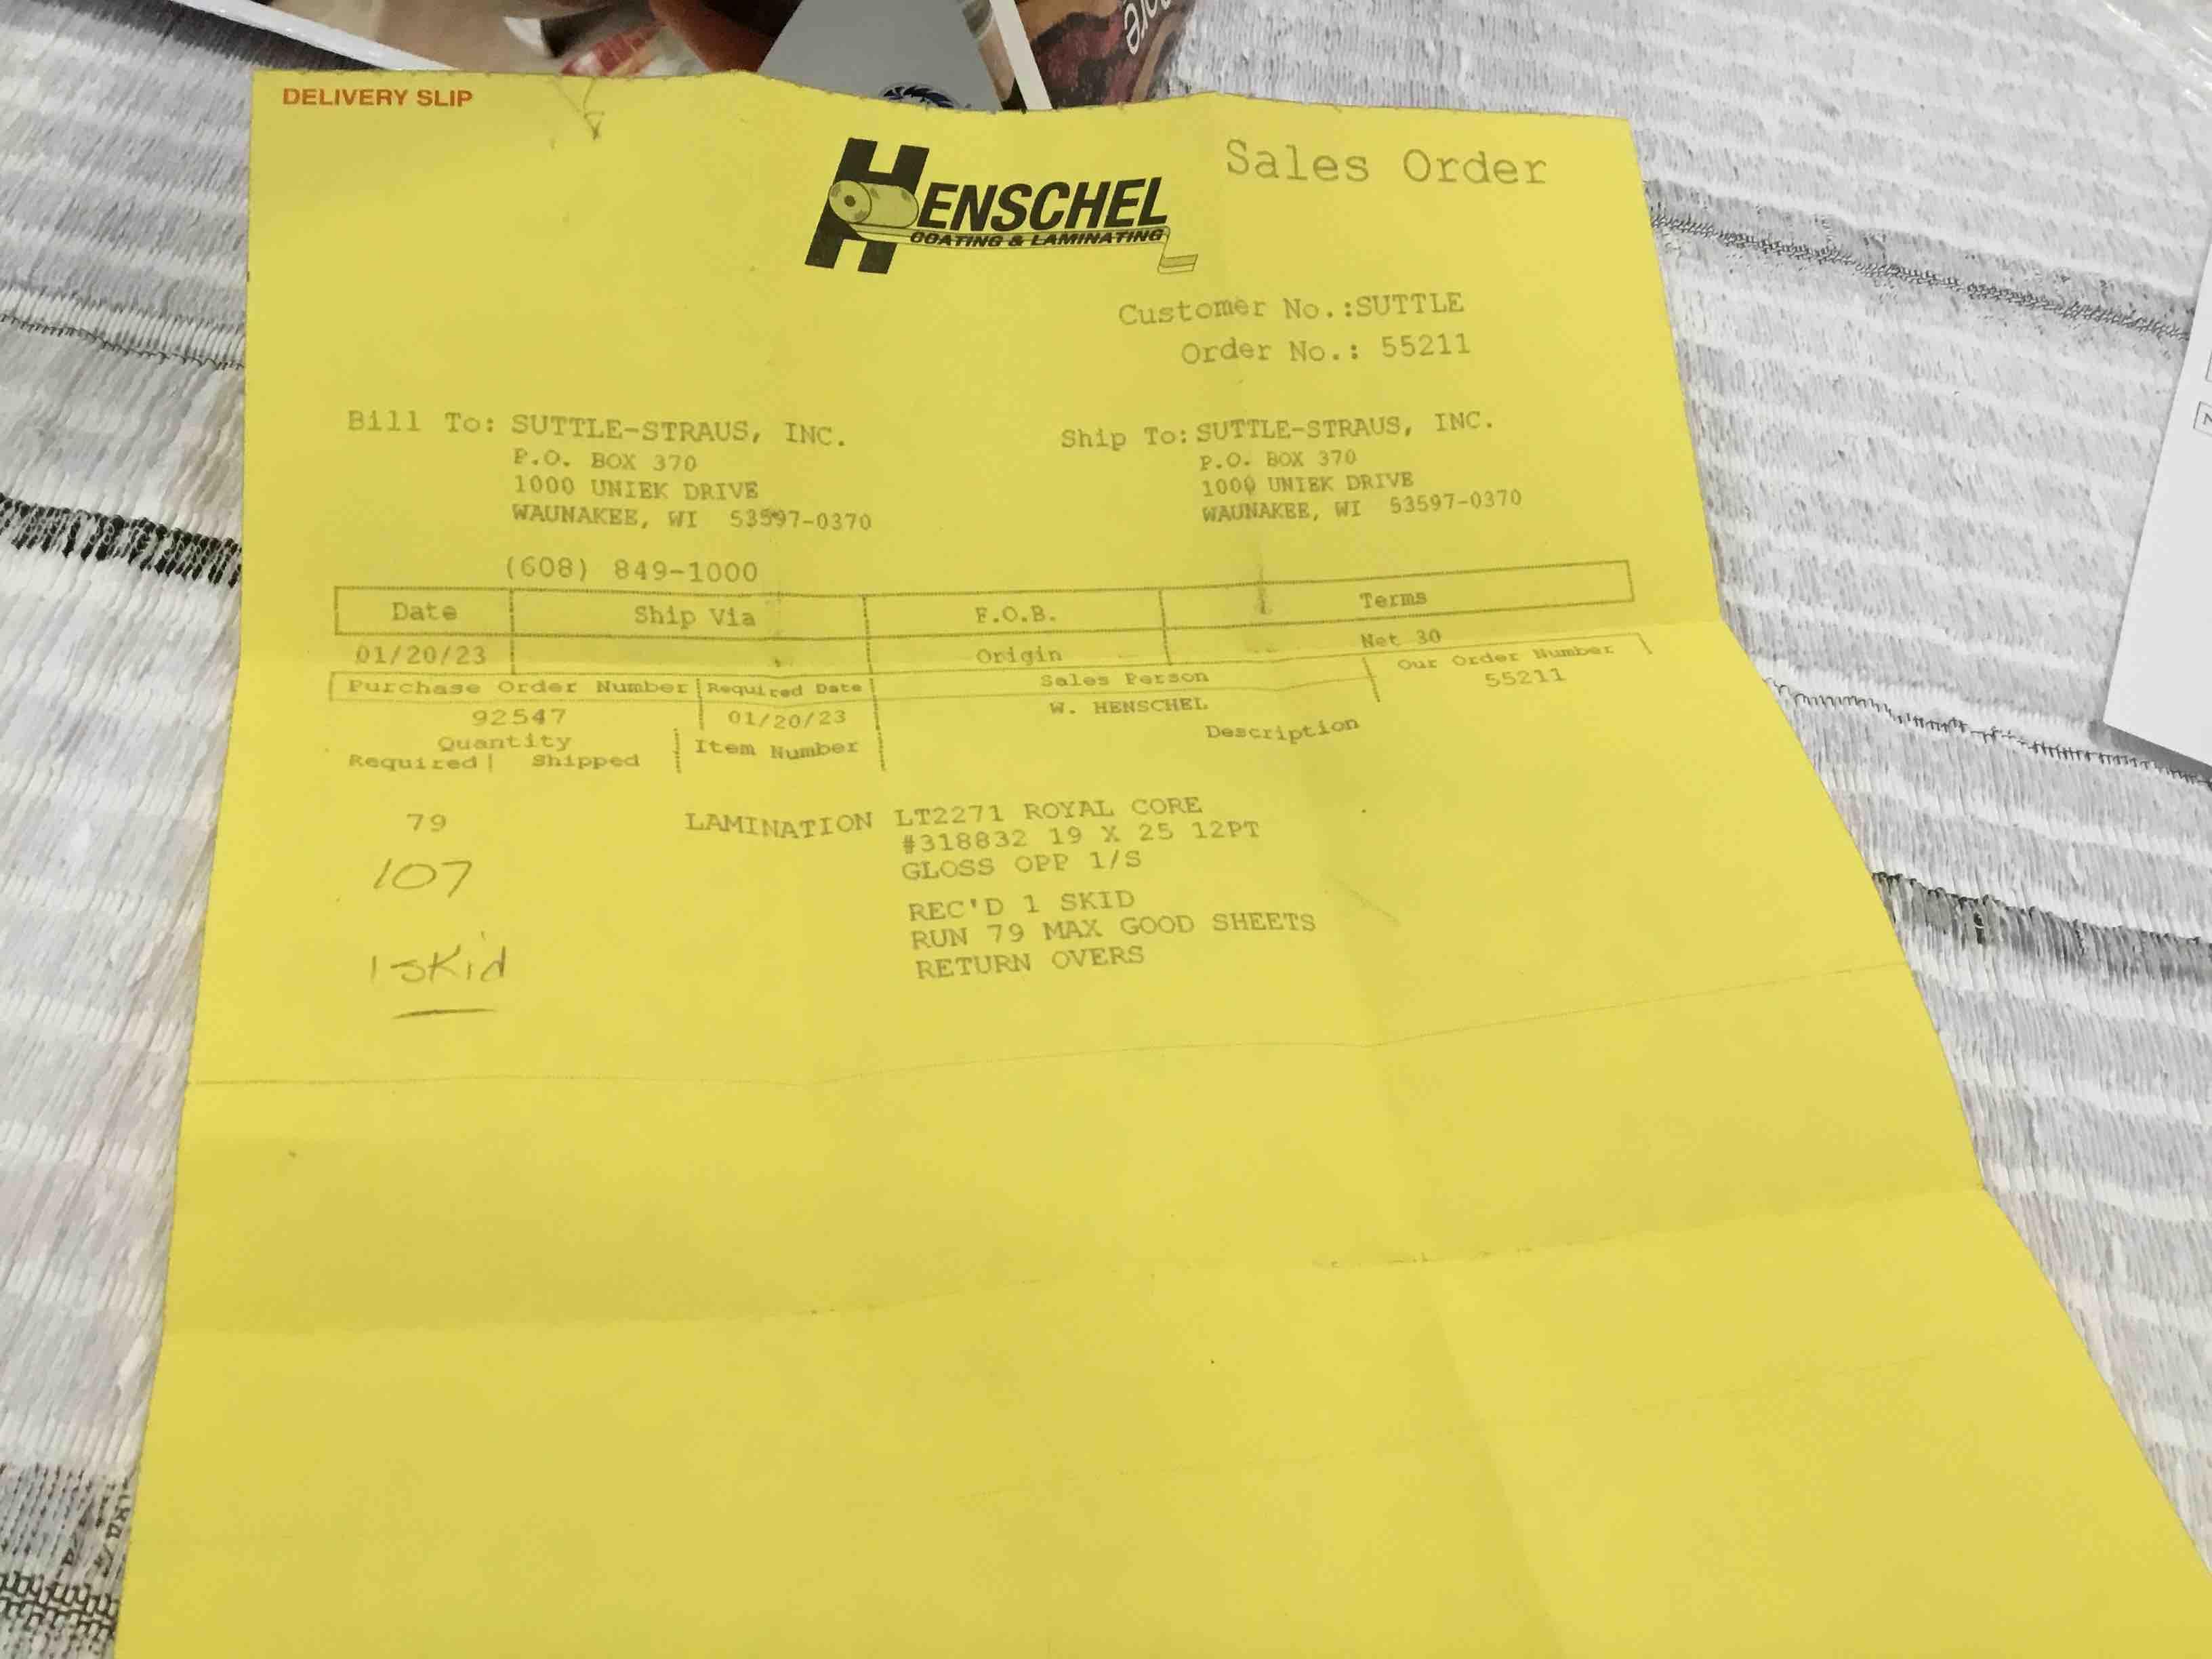 DELIVERY SLIP
HENSCHEL
COATING & LAMINATING
Sales Order
Customer No.:SUTTLE
Order No.: 55211
Bill To: SUTTLE-STRAUS, INC.
P.O. BOX 370
1000 UNIEK DRIVE
WAUNAKEE, WI 53597-0370
(608) 849-1000
Ship To: SUTTLE-STRAUS, INC.
P.O. BOX 370
1000 UNIEK DRIVE
WAUNAKEE, WI 53597-0370
Date Ship Via F.O.B. Terms
01/20/23 Origin Net 30
Purchase Order Number Required Date Sales Person Our Order Number
92547 01/20/23 W. HENSCHEL 55211
Quantity Item Number Description
Required | Shipped
79 LAMINATION LT2271 ROYAL CORE
#318832 19 X 25 12PT
107 GLOSS OPP 1/S
REC'D 1 SKID
RUN 79 MAX GOOD SHEETS
1 skid RETURN OVERS